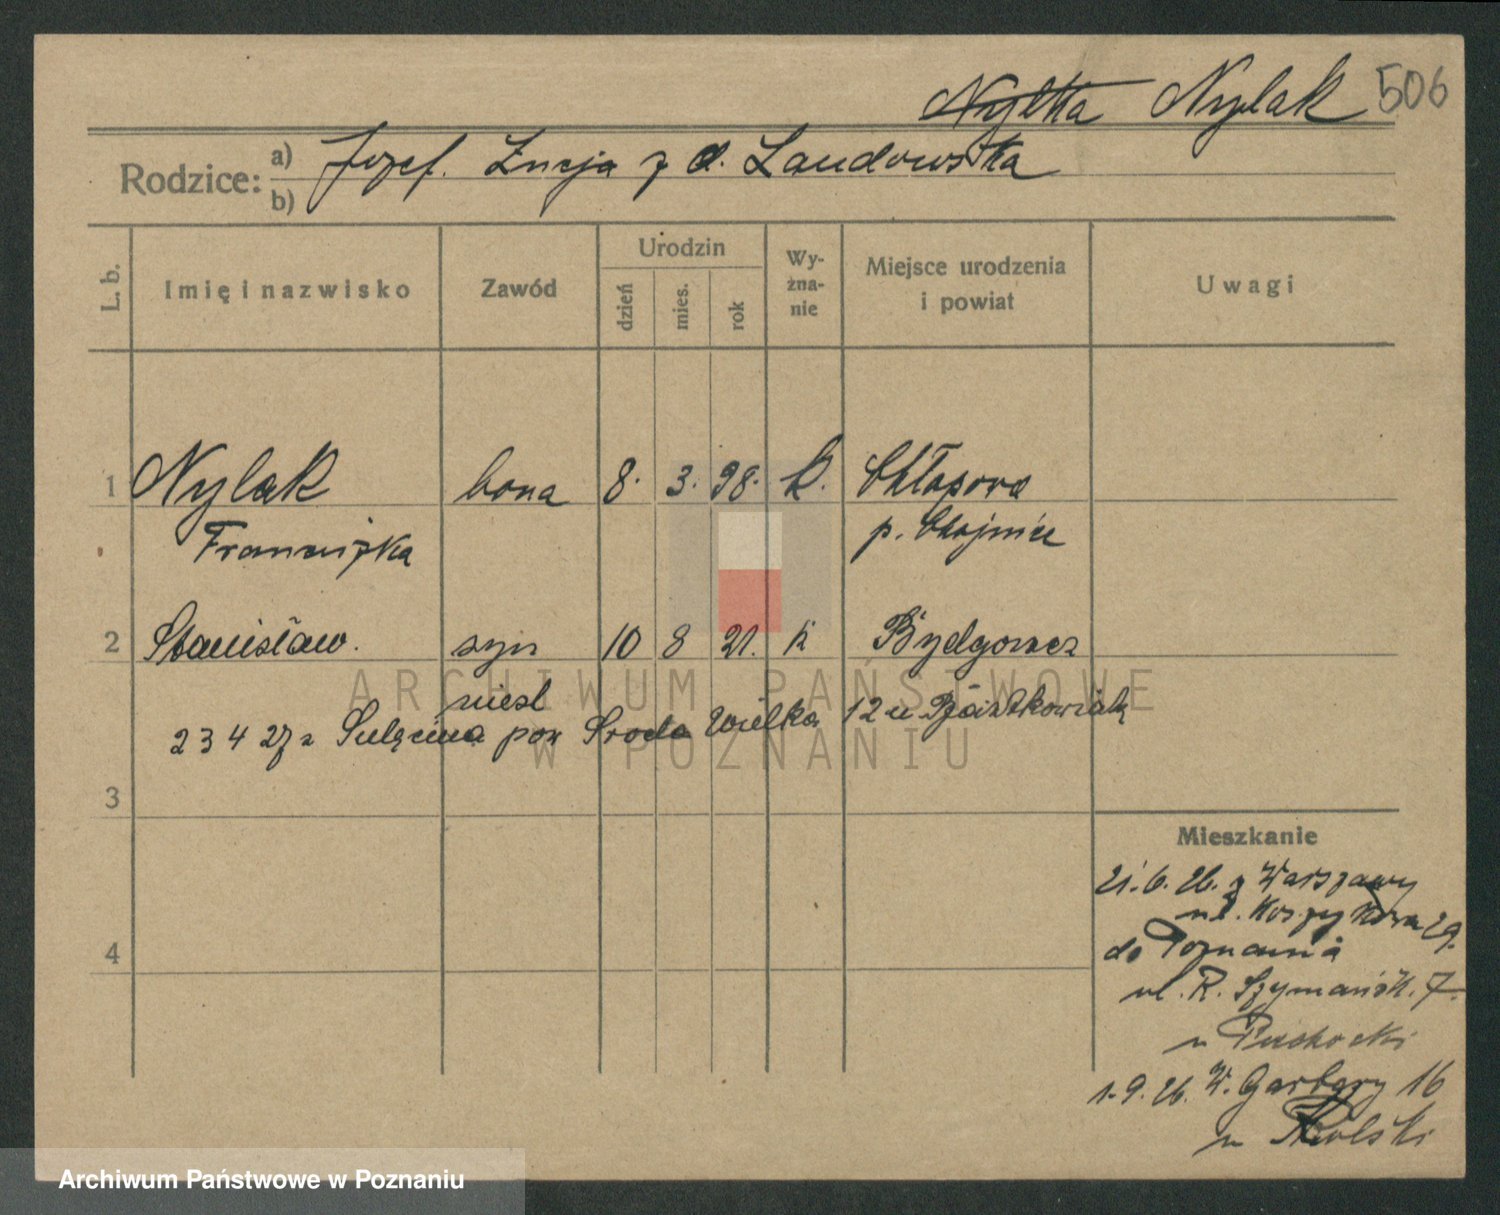 Nytka Nylak 506
Rodzice: a) Jozef. Łucja z d. Landowska
b)
L. b. Imię i nazwisko Zawód Urodzin dzień mies. rok Wyżnanie Miejsce urodzenia i powiat Uwagi
1 Nylak bona 8. 3. 98. k. Chłapowo
Franciszka p. Chojnice
2 Stanisław. syn 10 8 21. k Bydgoszcz
niesl
23 4 27 z Sulęcina pow Sroda Wielka 12 u
3
Mieszkanie
21.6.26. z Warszawy
ul. Koszykowa 29.
do Poznania
4
ul. R. Szymańsk. 7.
u
1.9.26. W. Garbary 16
u Kolski
ARCHIWUM PAŃSTWOWE
W POZNANIU
Archiwum Państwowe w Poznaniu